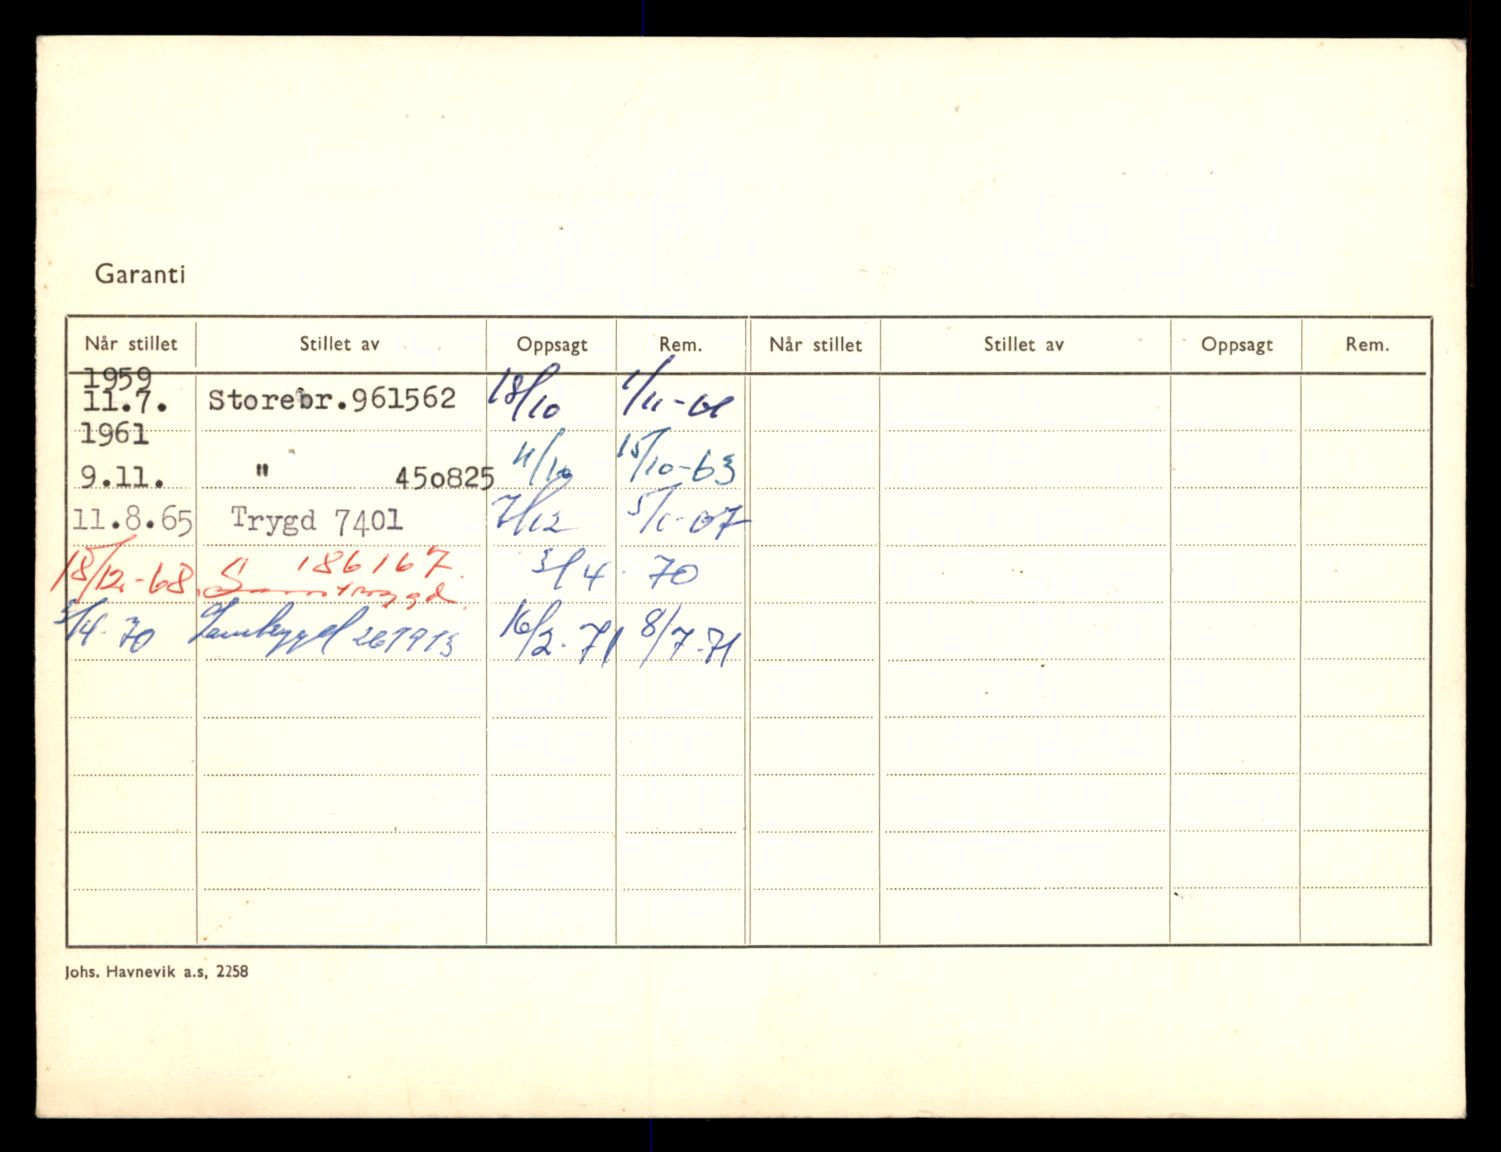 Garanti
Når stillet Stillet av Oppsagt Rem. Når stillet Stillet av Oppsagt Rem.
1959
11.7. Storebr.961562 18/10 1/11-61
1961
9.11. " 450825 11/10 15/10-63
11.8.65 Trygd 7401 7/12 5/1-67
186167
18/12-68 Samtrygd 3/4. 70
3/4-70 Samtrygd 267913 16/2.71 8/7-71
Johs. Havnevik a.s, 2258